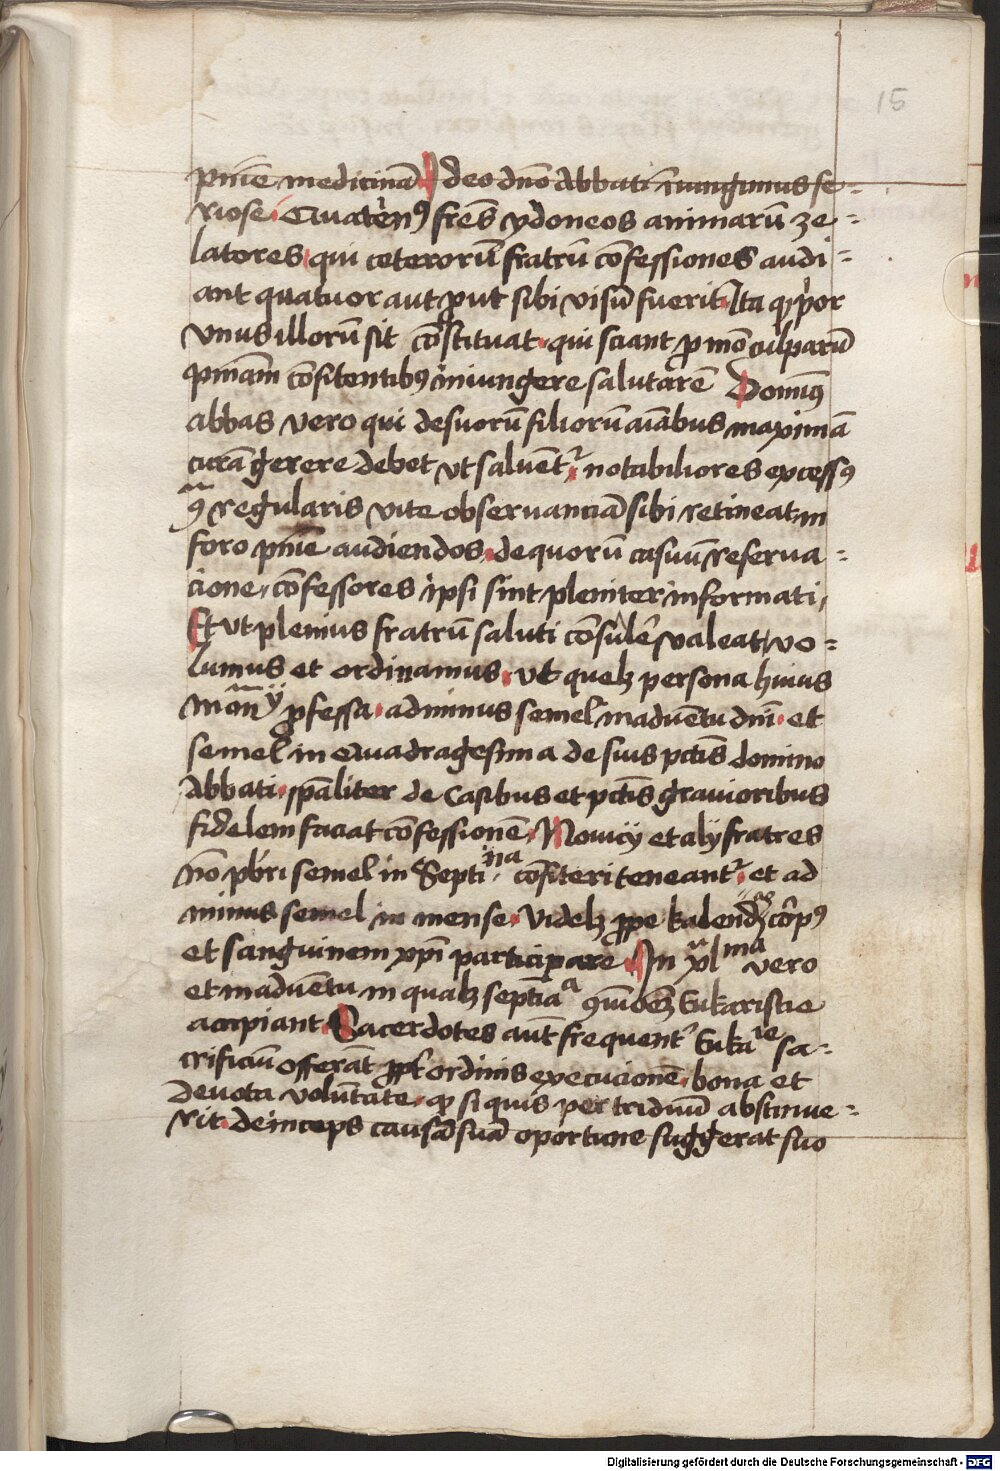 15
pnie͂ medicinā Ideo dn̄o Abbati iniungimus se=
riose Quaten⁹ fr̄es ydoneos animarū ze=
latores qui ceterorū fratrū cōfessiones audi=
ant quatuor aut ꝓut sibi visū fuerit Ita ꝙ p̄or
vnus illorū sit cōstituat qui sciant ꝓ mō culparū
pn̄iam cōfitentibꝰ iniungere salutarē Domin⁹
abbas vero qui de suorū filiorū aīabus maximā
curā gerere debet vt saluent᷑ notabiliores excess⁹
9ᵃ regularis vite obseruanciā sibi retineat in
foro pn̄ie audiendos de quorū casuū reserua=
cione cōfessores ipsi sint pleniter informati
Et vt plenius fratrū saluti cōsulē valeat vo=
lumus et ordinamus vt quelꝫ persona huius
mon̄ij ꝓfessa ad minus semel in aduētu dn̄i et
semel in Quadragesima de suis pctīs domino
Abbati sp̄aliter de Casibus et pctīs grauioribus
fidelem faciat cōfessionē Nouicij et alij fratres
nō pbr̄i semel in Septiⁿᵃ cōfiteri teneant᷑ et ad
minus semel in mense Videlꝫ ꝓpe kalendas cōrp⁹
et sanguinem xp̄i participare In xlᵐᵃ vero
et in aduētu in qualꝫ septīaᵃ 9muōeꝫ Eukaristie
accipiant Sacerdotes aūt frequent᷑ Eukaⁱᵉ sa=
crificiū offerāt ꝓpt᷑ ordinis execucionē bona et
deuota volūtate ꝙ si quis per triduū abstinue=
rit deinceps causā suā oportune suggerat suo
Digitalisierung gefördert durch die Deutsche Forschungsgemeinschaft - DFG